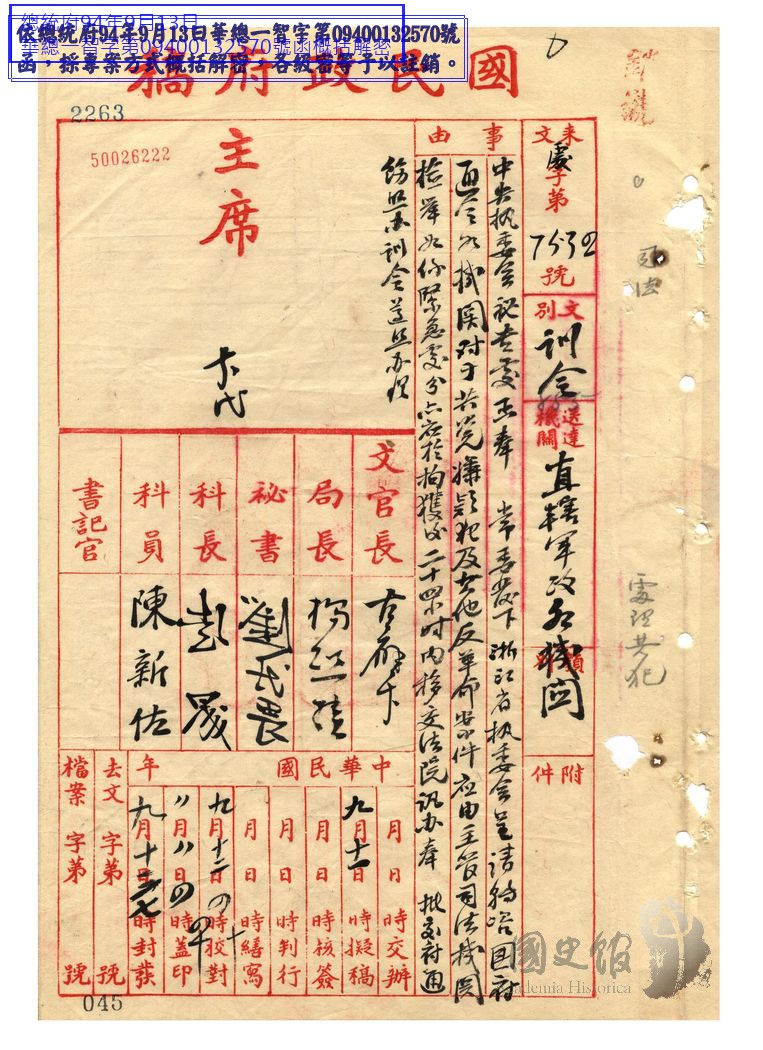 總統府94年9月13日
華總一智字第09400132570號函概括解密
依總統府94年9月13日華總一智字第09400132570號
函，採專案方式概括解密，各級密等予以註銷。
國民政府稿
2263
50026222
來文
處字第
7532
號
文別
訓令
送達機關
直轄軍政各機關
附件
事由
中央执委会秘书处函奉 常委发下浙江省执委会呈请转咨国府
通令各机关对于共党嫌疑犯及其他反革命案件应由主管司法机关
检举如系紧急处分亦应于拘獲後二十四小时内移交法院讯办奉 批交府通
饬照办训令遵照办理
主席
文官長
局長
秘書
科長
科員
書記官
陳新佐
彭晟
劉民畏
楊熙績
古應芬
中華民國 年
月 日 時交辦
九月十一日 時擬稿
月 日 時核簽
月 日 時判行
月 日 時繕寫
九月十二日 時校對
月 日 時蓋印
九月十 日 時封發
去文 字第 號
檔案 字第 號
司法
處理共犯
國史館
Academia Historica
045